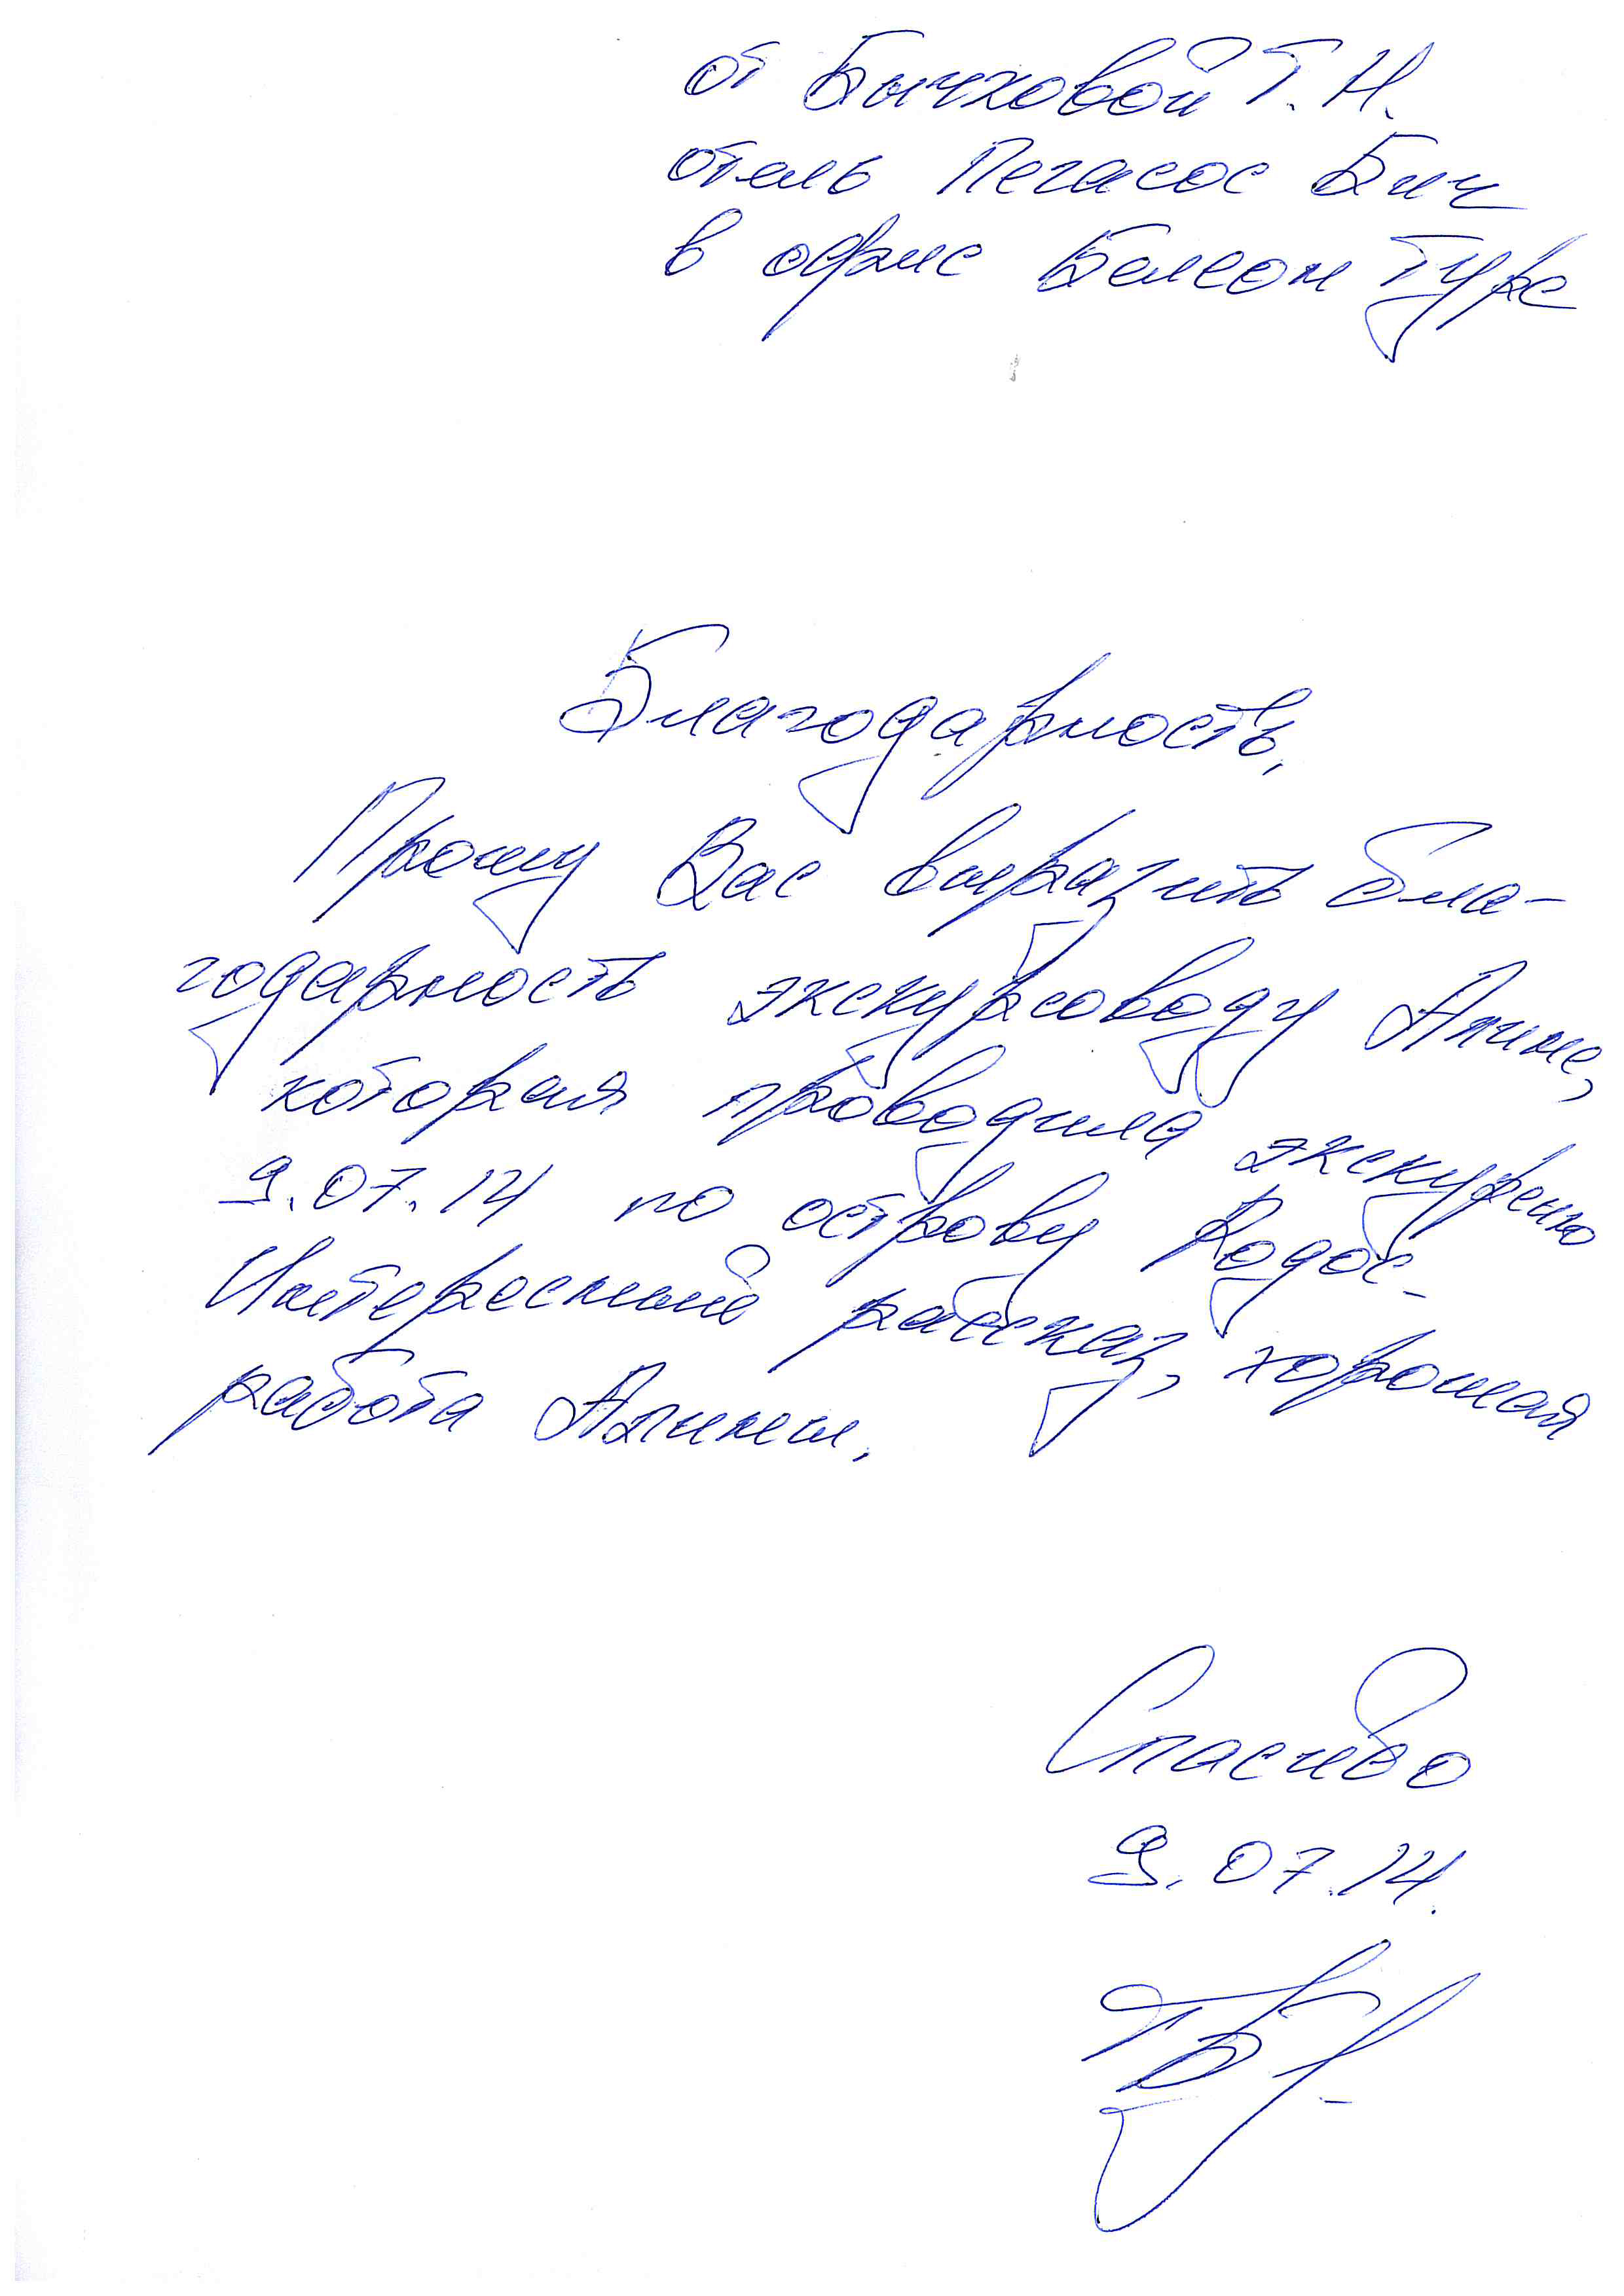 от Бычковой Т. Н.
отель Пегасос Бич
в офис Балеон Турс
Благодарность.
Прошу Вас выразить бла-
годарность экскурсоводу Алине,
которая проводила экскурсию
9.07.14 по острову Родос-
Интересный рассказ, хорошая
работа Алины.
Спасибо
9.07.14.